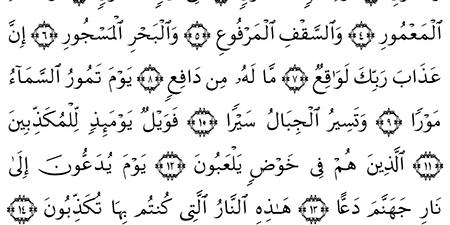 ٱلۡمَعۡمُورِ ﴿٤﴾ وَٱلسَّقۡفِ ٱلۡمَرۡفُوعِ ﴿٥﴾ وَٱلۡبَحۡرِ ٱلۡمَسۡجُورِ ﴿٦﴾ إِنَّ
عَذَابَ رَبِّكَ لَوَٰقِعٞ ﴿٧﴾ مَّا لَهُۥ مِن دَافِعٖ ﴿٨﴾ يَوۡمَ تَمُورُ ٱلسَّمَآءُ
مَوۡرٗا ﴿٩﴾ وَتَسِيرُ ٱلۡجِبَالُ سَيۡرٗا ﴿١٠﴾ فَوَيۡلٞ يَوۡمَئِذٖ لِّلۡمُكَذِّبِينَ
﴿١١﴾ ٱلَّذِينَ هُمۡ فِي خَوۡضٖ يَلۡعَبُونَ ﴿١٢﴾ يَوۡمَ يُدَعُّونَ إِلَىٰ
نَارِ جَهَنَّمَ دَعًّا ﴿١٣﴾ هَٰذِهِ ٱلنَّارُ ٱلَّتِي كُنتُم بِهَا تُكَذِّبُونَ ﴿١٤﴾